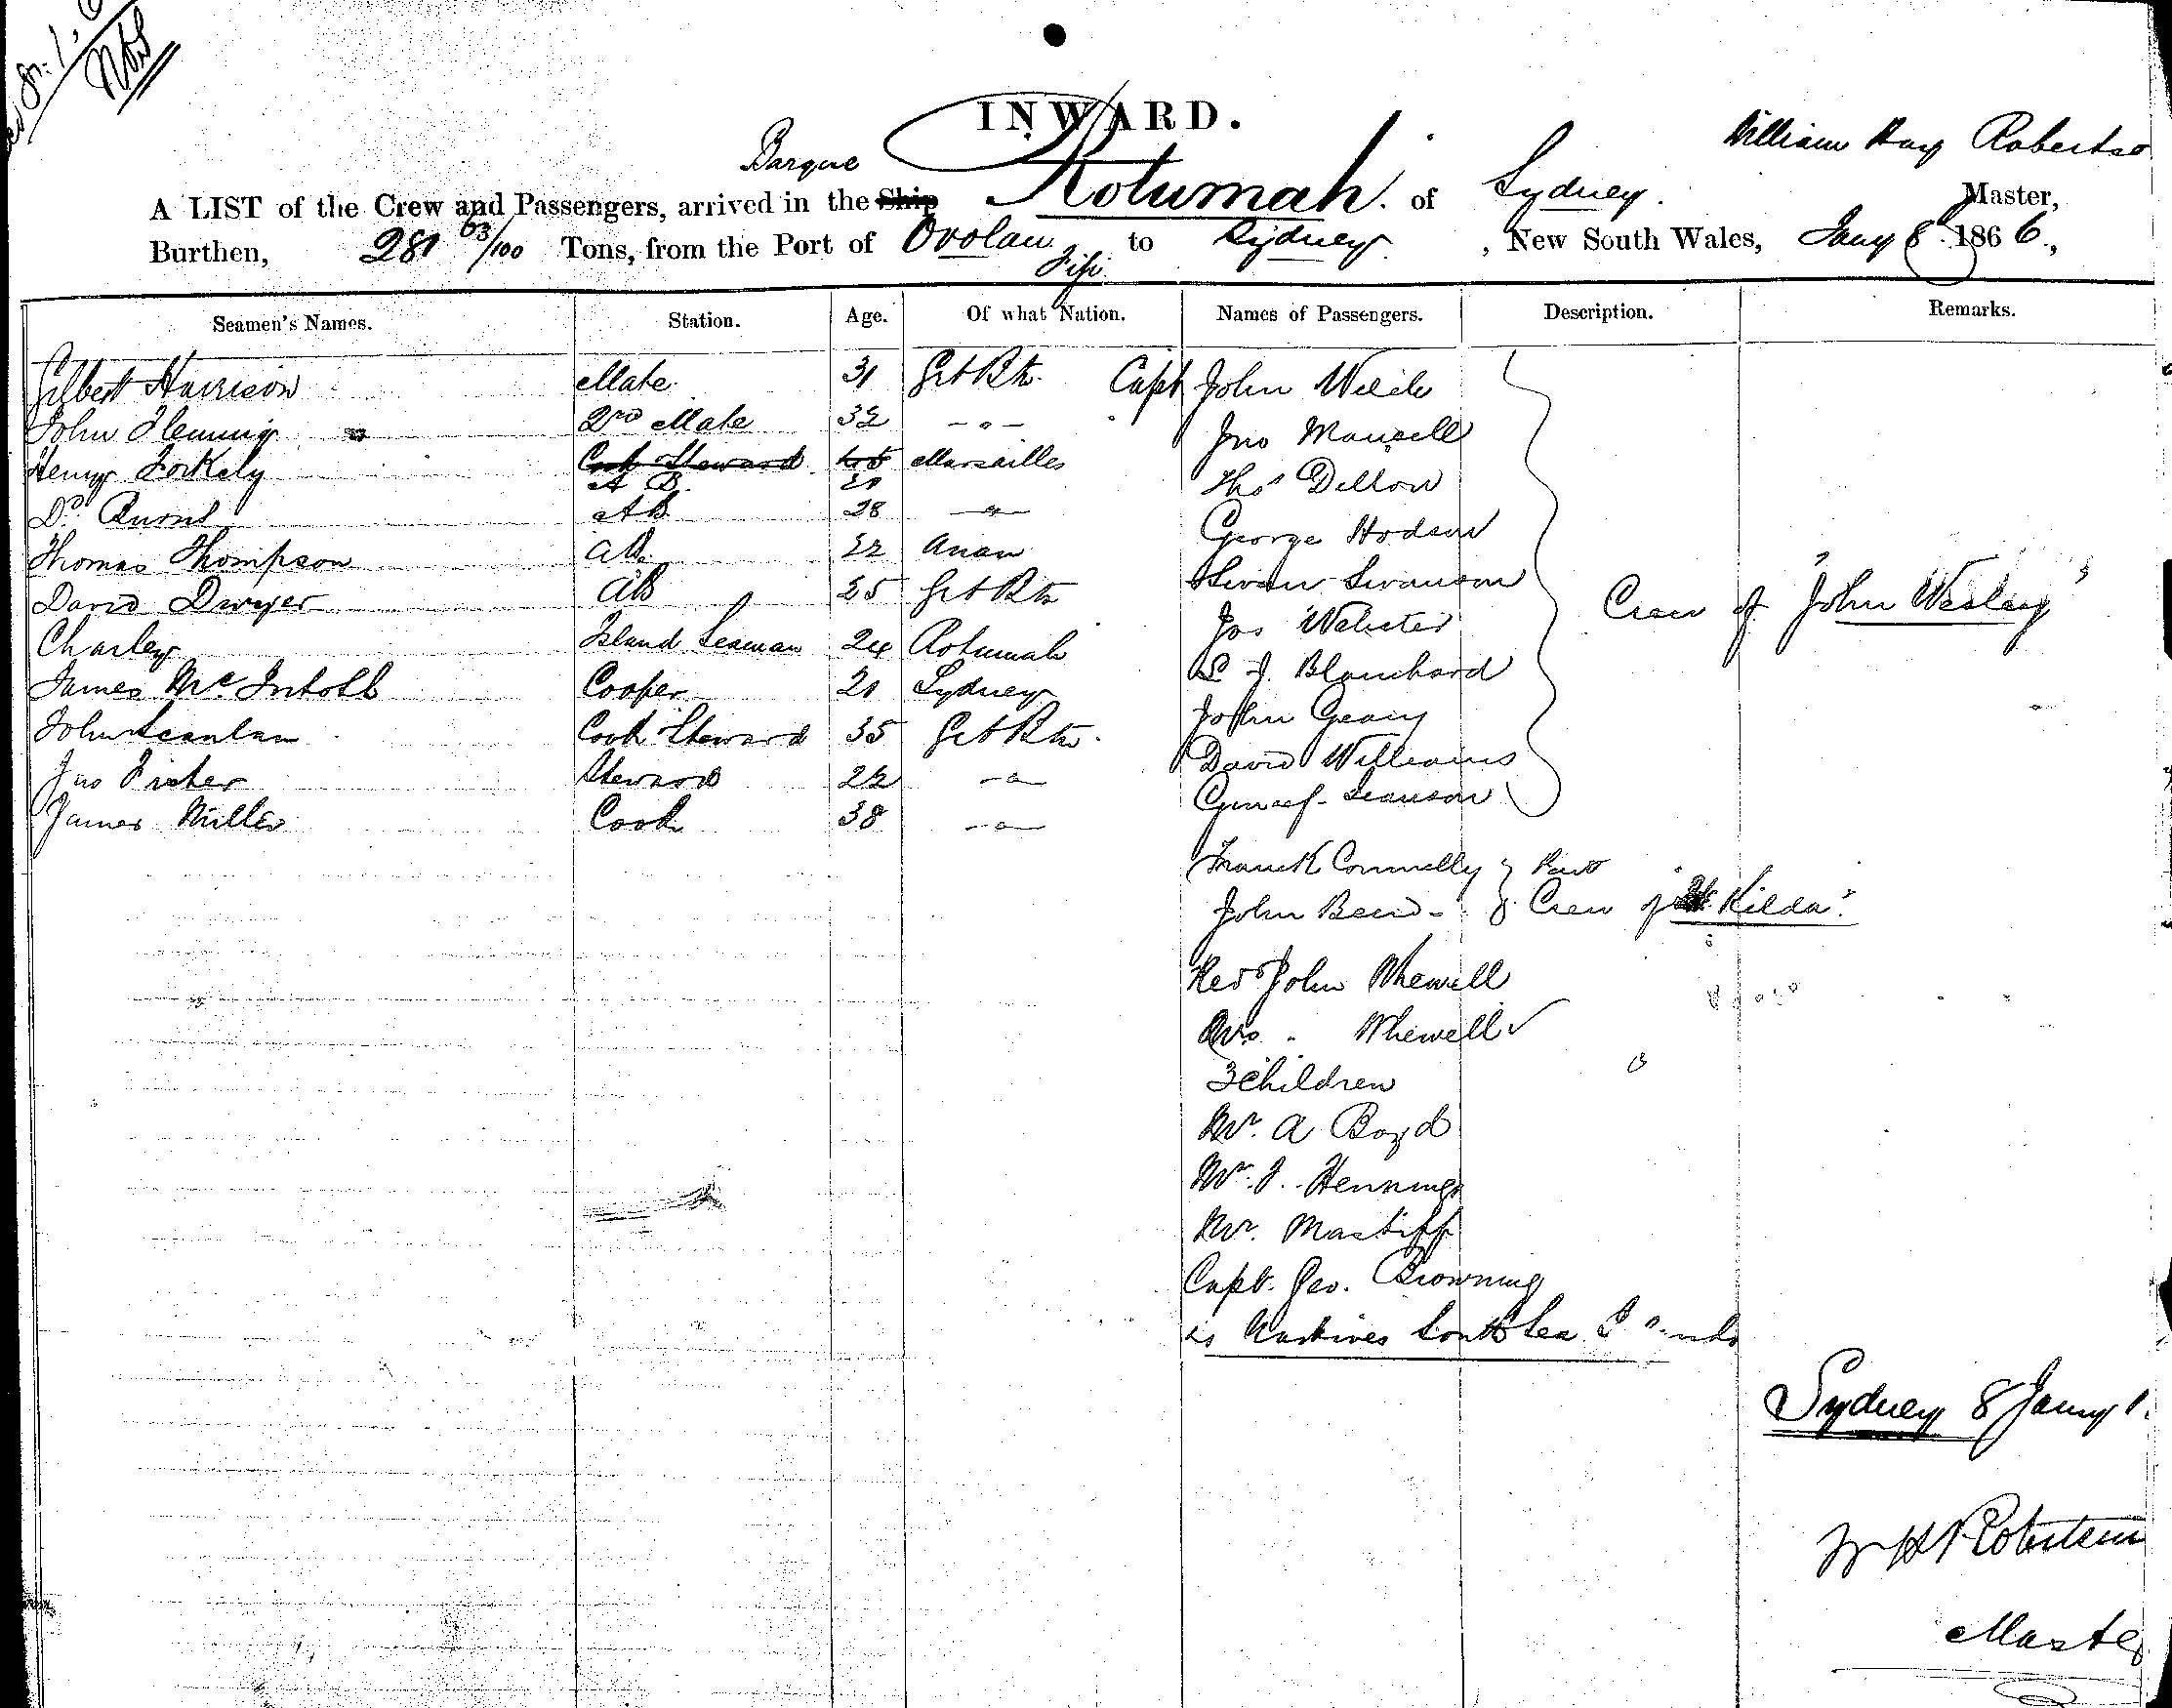 INWARD.
Barque
William Hay Robertso
A LIST of the Crew and Passengers, arrived in the Ship Rotumah. of Sydney. Master,
Burthen, 281 63/100 Tons, from the Port of Ovolau Fiji to Sydney, New South Wales, Jany 8 1866.,
Seamen's Names. Station. Age. Of what Nation. Names of Passengers. Description. Remarks.
Gilbert Harrison Mate 31 Grt Btn. Capt John Welch
John Fleming 2nd Mate 32 - " - Jno Mansell
Henry Cook Steward Marsailles Thos Dillon
A B
Do AB 28 - " - George Hodson
Thomas Thompson AB 22 Swanson
David Dwyer AB 25 Grt Btn Jas Webster Crew of "John Wesley"
Charley Island Seaman 24 Rotumah Blanchard
James McIntosh Cooper 21 Sydney John Geary
John Scanlan Cook Steward 35 Grt Btn. David Williams
Jno Fisher Steward 22 - " -
James Miller Cook 38 - " -
Franck Connelly Part
John Crew of St Kilda"
Revd John Whewell
Mrs. " Whewell
3 children
Mr. A Boyd
Mr. J. Hennings
Mr. Mastiff
Capt. Geo. Browning
Natives South Sea Islands
Sydney 8 Jany
W H Robertson
Master